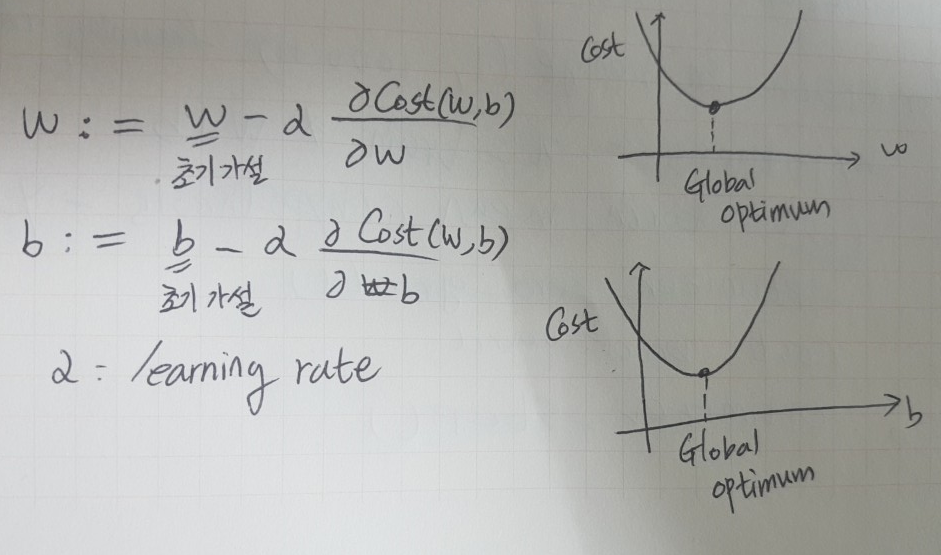 w := w - α ∂Cost(w,b) / ∂w
초기가설
b := b - α ∂Cost(w,b) / ∂b
초기가설
α = learning rate
Cost
w
Global
optimum
Cost
b
Global
optimum